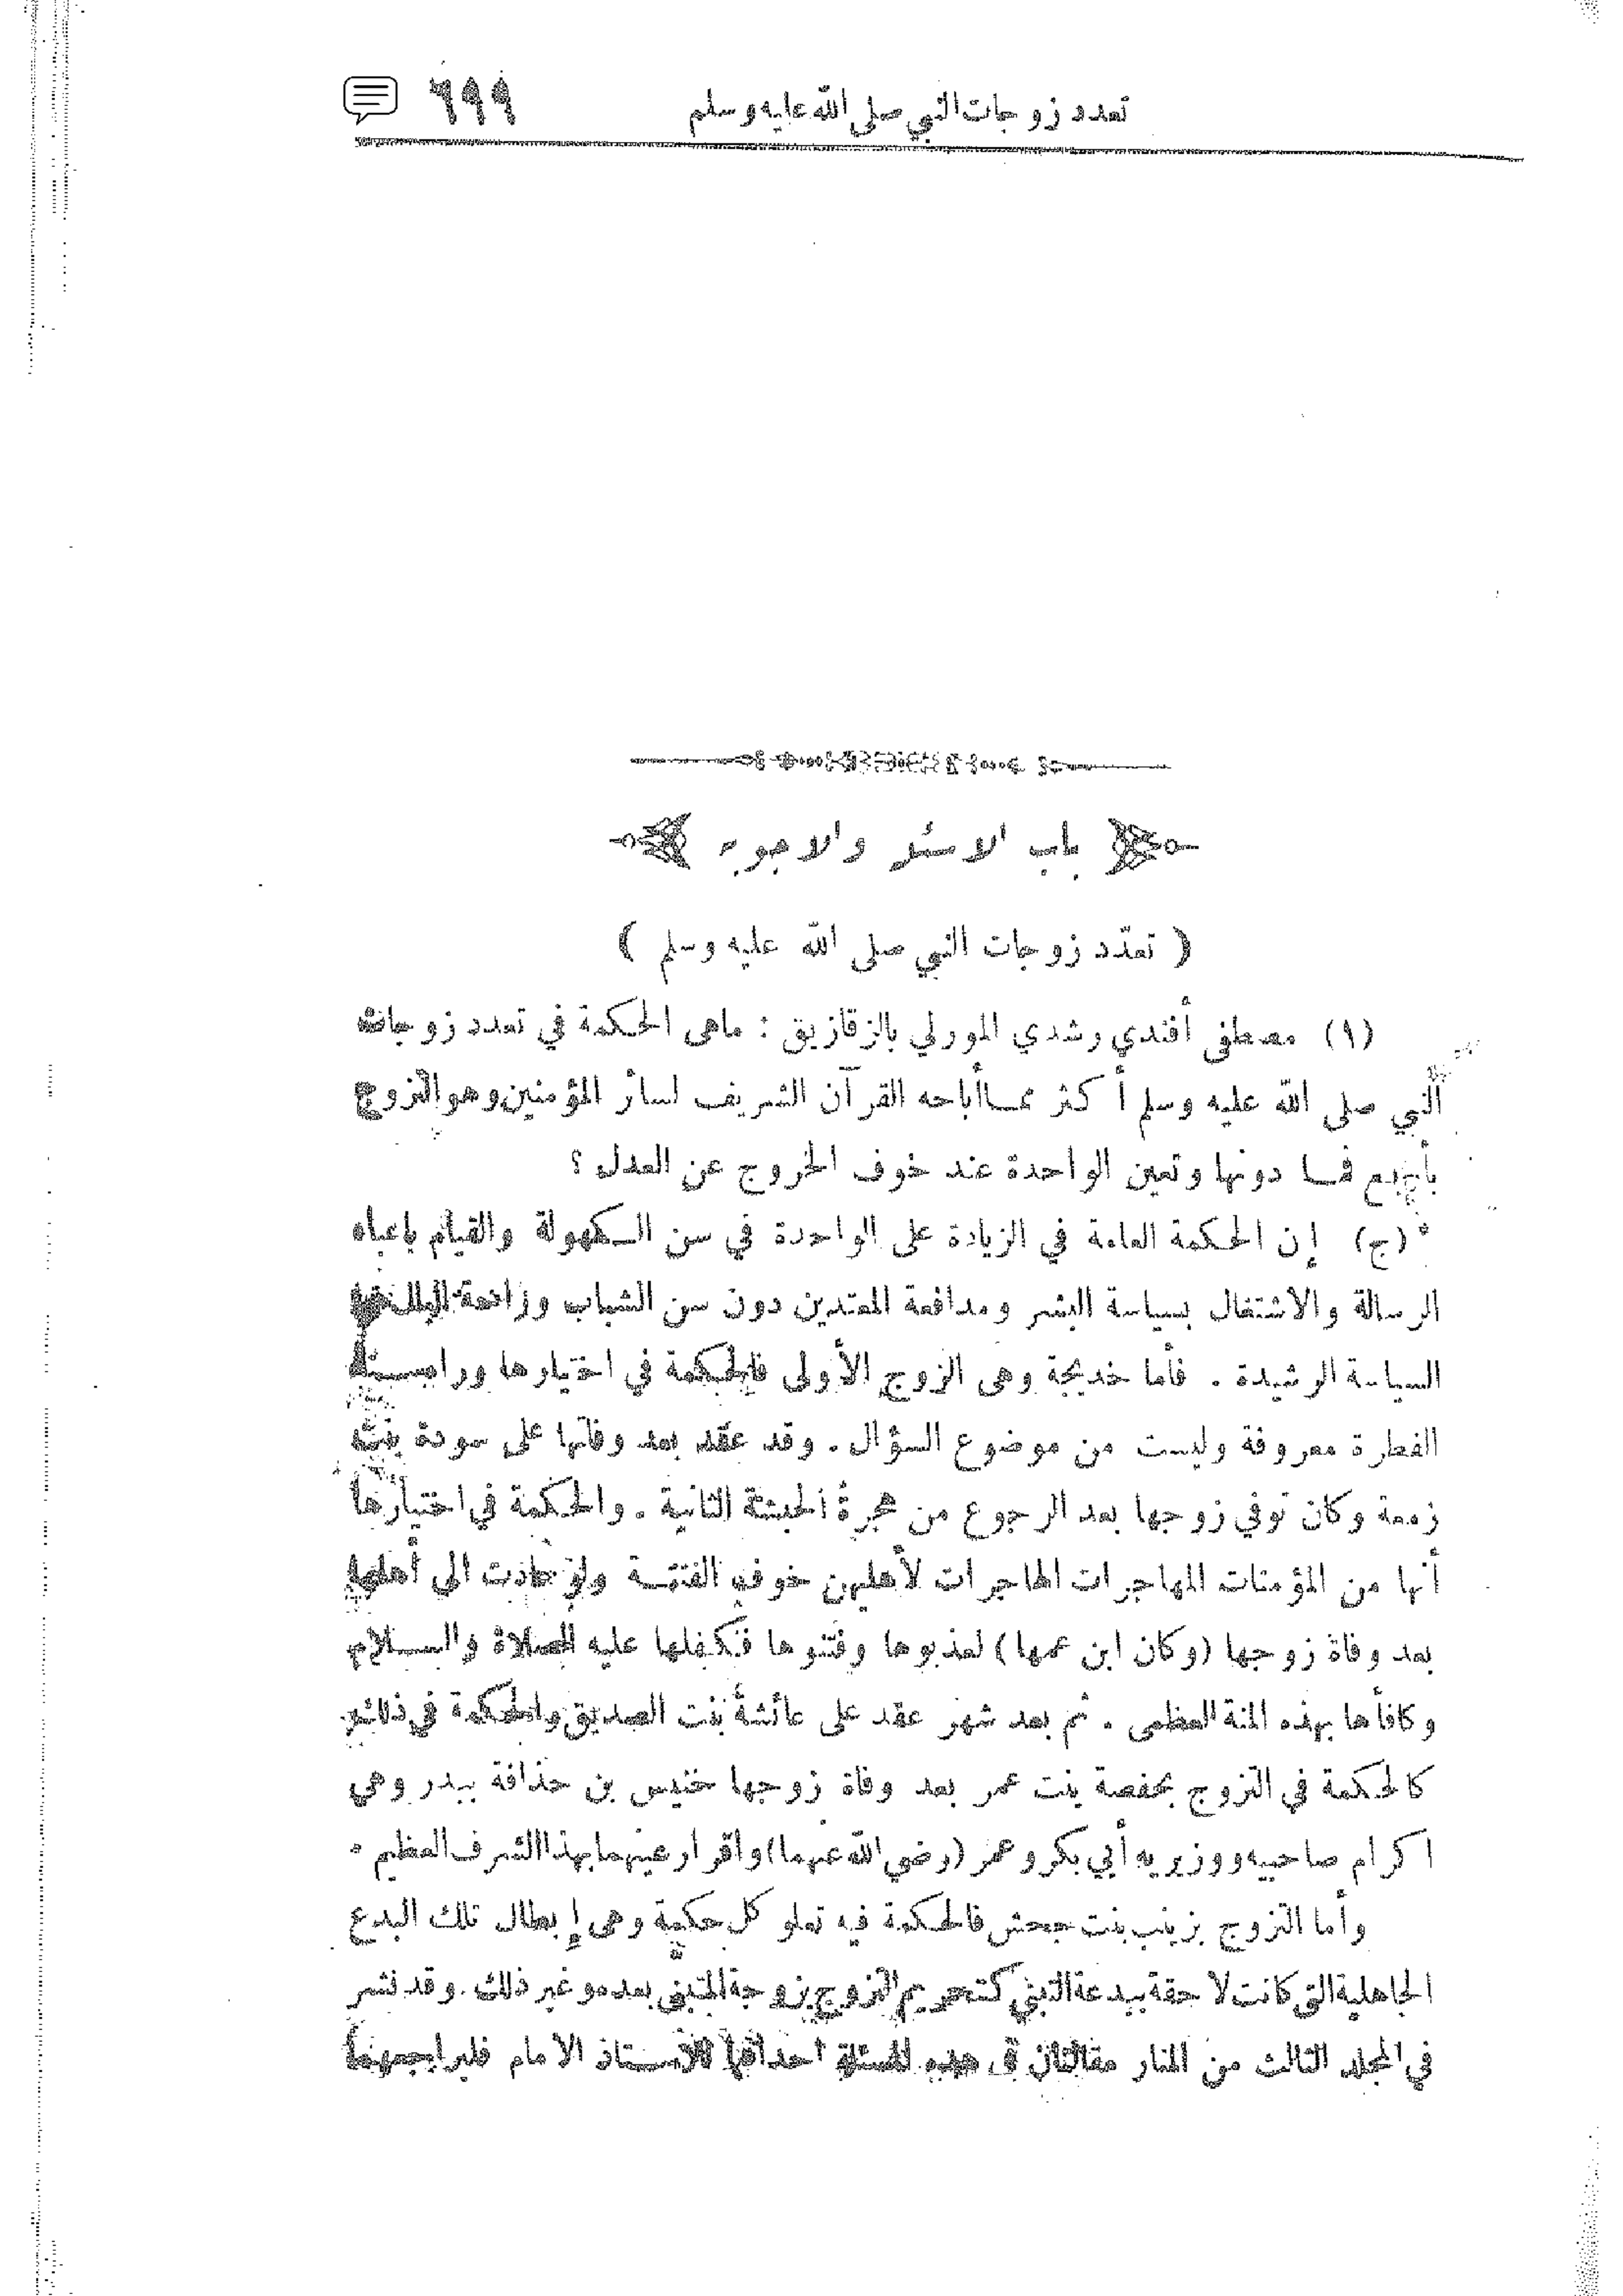 تعدد زوجات النبي صلى الله عليه وسلم ٦٩٩
باب الاسئلة والاجوبة
( تعدّد زوجات النبي صلى الله عليه وسلم )
(١) مصطفى أفندي رشدي المورلي بالزقازيق : ماهى الحكمة في تعدد زوجات
النبي صلى الله عليه وسلم أكثر مما أباحه القرآن الشريف لسائر المؤمنين وهو التزوج
بأربع فما دونها وتعين الواحدة عند خوف الخروج عن العدل ؟
(ج) إن الحكمة العامة في الزيادة على الواحدة في سن الكهولة والقيام باعباء
الرسالة والاشتغال بسياسة البشر ومدافعة المعتدين دون سن الشباب وراحة البال هي
السياسة الرشيدة . فأما خديجة وهى الزوج الأولى فالحكمة في اختيارها وراء سنة
الفطرة معروفة وليست من موضوع السؤال . وقد عقد بعد وفاتها على سودة بنت
زمعة وكان توفي زوجها بعد الرجوع من هجرة الحبشة الثانية . والحكمة في اختيارها
أنها من المؤمنات المهاجرات الهاجرات لأهليهن خوف الفتنة ولو عادت الى أهلها
بعد وفاة زوجها (وكان ابن عمها) لعذبوها وفتنوها فكفلها عليه الصلاة والسلام
وكافأها بهذه المنة العظمى . ثم بعد شهر عقد على عائشة بنت الصديق والحكمة في ذلك
كالحكمة في التزوج بحفصة بنت عمر بعد وفاة زوجها خنيس بن حذافة ببدر وهي
اكرام صاحبيه ووزيريه أبي بكر وعمر (رضي الله عنهما) واقرار عينهما بهذا الشرف العظيم .
وأما التزوج بزينب بنت جحش فالحكمة فيه تعلو كل حكمة وهى إبطال تلك البدع
الجاهلية التي كانت لاحقة ببدعة التبني كتحريم التزوج بزوجة المتبنى بعده وغير ذلك . وقد نشر
في المجلد الثالث من المنار مقالتان في هذه المسئلة احداهما للأستاذ الامام فليراجعهما